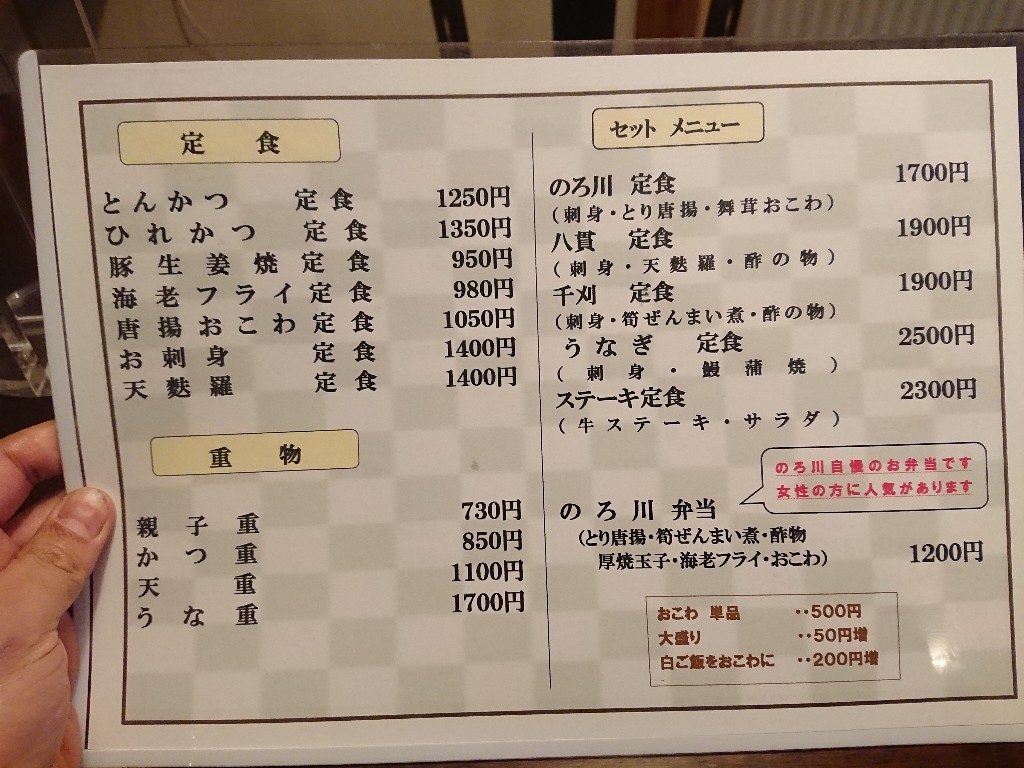 定食
とんかつ 定食 1250円
ひれかつ 定食 1350円
豚生姜焼定食 950円
海老フライ定食 980円
唐揚おこわ定食 1050円
お刺身 定食 1400円
天麩羅 定食 1400円
重物
親子重 730円
かつ重 850円
天重 1100円
うな重 1700円
セット メニュー
のろ川 定食 1700円
(刺身・とり唐揚・舞茸おこわ)
八貫 定食 1900円
(刺身・天麩羅・酢の物)
千刈 定食 1900円
(刺身・筍ぜんまい煮・酢の物)
うなぎ 定食 2500円
(刺身・鰻蒲焼)
ステーキ定食 2300円
(牛ステーキ・サラダ)
のろ川自慢のお弁当です
女性の方に人気があります
のろ川 弁当
(とり唐揚・筍ぜんまい煮・酢物
厚焼玉子・海老フライ・おこわ) 1200円
おこわ 単品 ‥500円
大盛り ‥50円増
白ご飯をおこわに ‥200円増